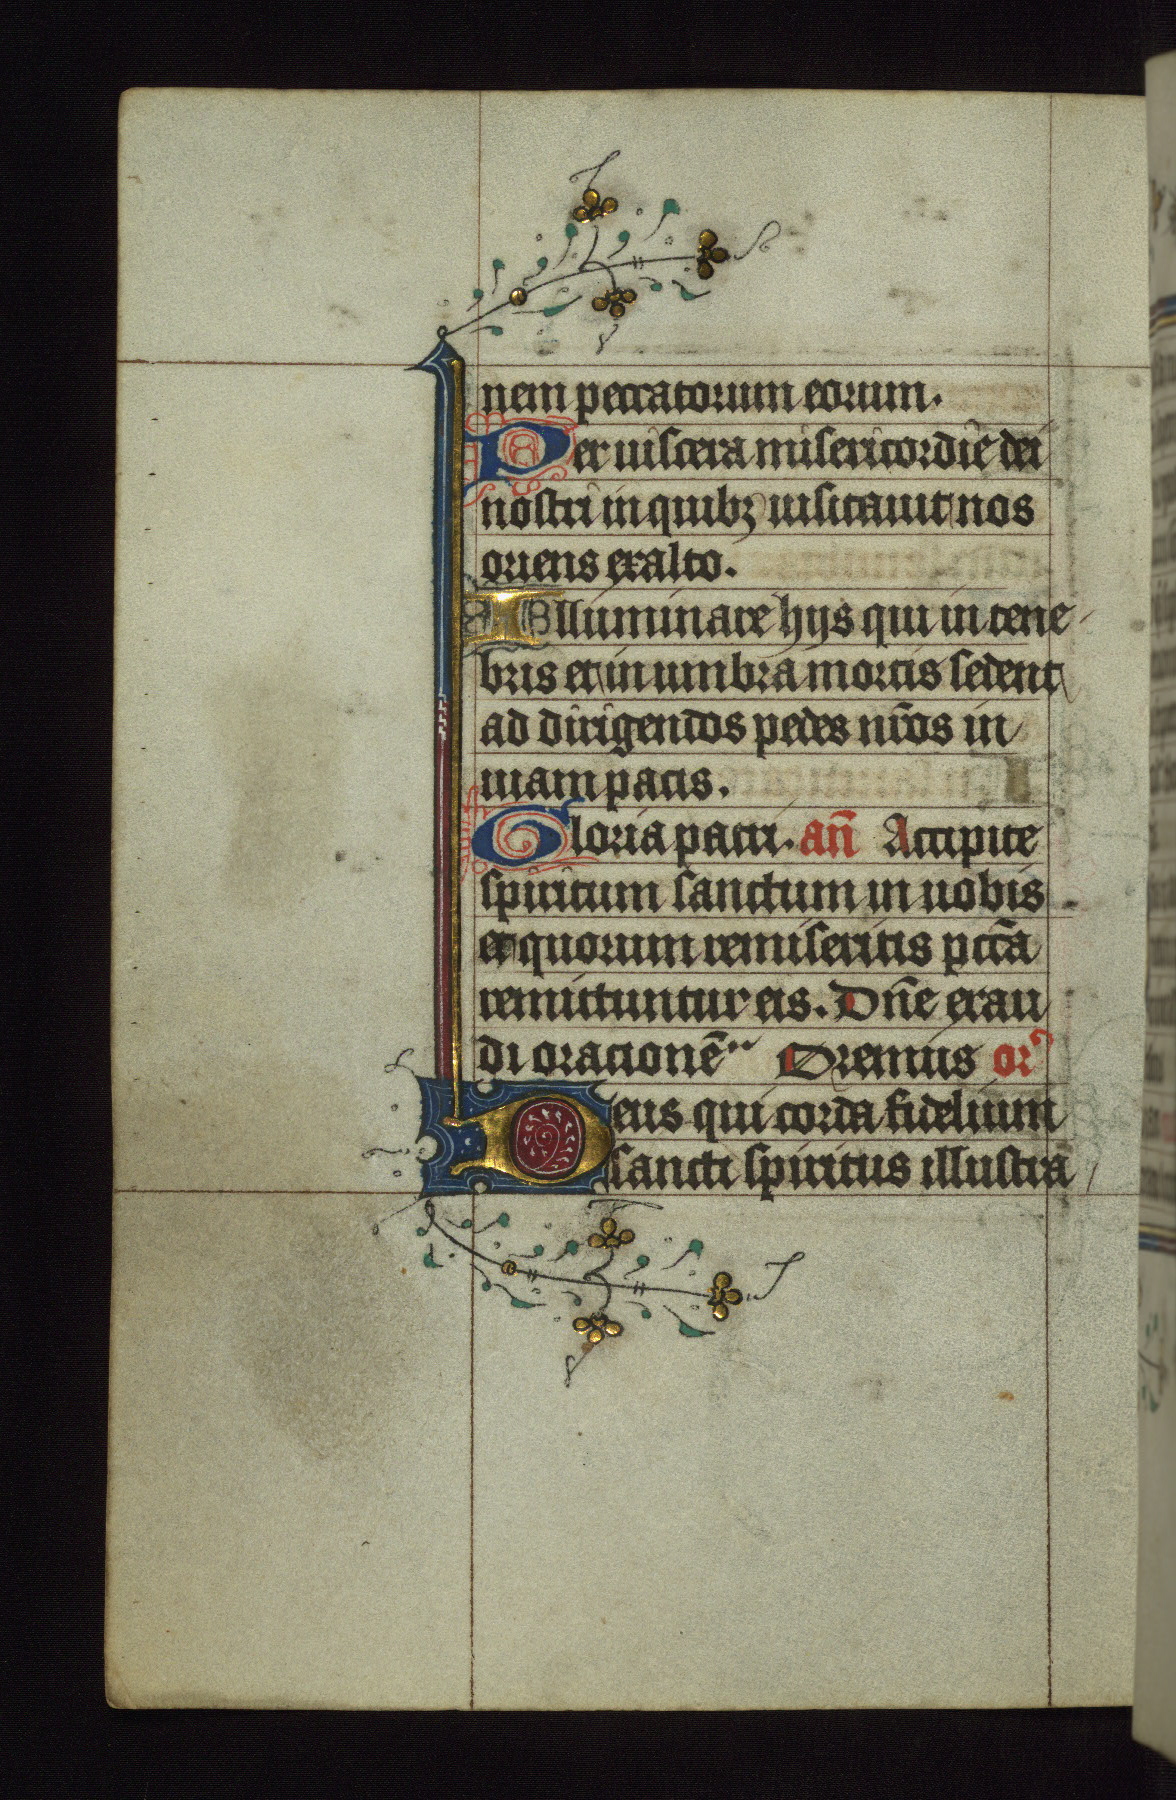 nem peccatorum eorum.
Per uiscera misericordie dei
nostri in quibꝫ uisitauit nos
oriens exalto.
Illuminare hijs qui in tene
bris et in umbra mortis sedent
ad dirigendos pedes nr̄os in
uiam pacis.
Gloria patri. an̄ Accipite
spiritum sanctum in uobis
et quorum remiseritis pcc̄a
remittuntur eis. Dn̄e exau
di orationē Oremus or
Deus qui corda fidelium
sancti spiritus illustra